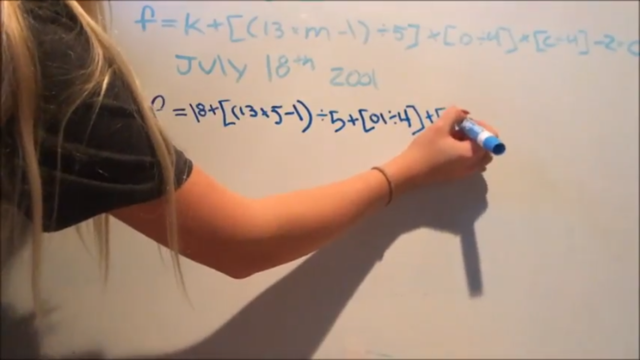 f = K + [(13 × m - 1) ÷ 5] + [D ÷ 4] + [C ÷ 4] - 2 × C
JULY 18th 2001
= 18 + [(13 × 5 - 1) ÷ 5 + [01 ÷ 4] + [